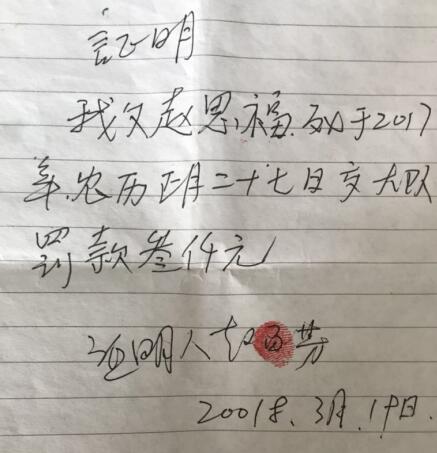 証明
我父赵思福于2017
年农历正月二十七日交大队
罚款叁仟元
证明人赵芬
20018、3月.19日.